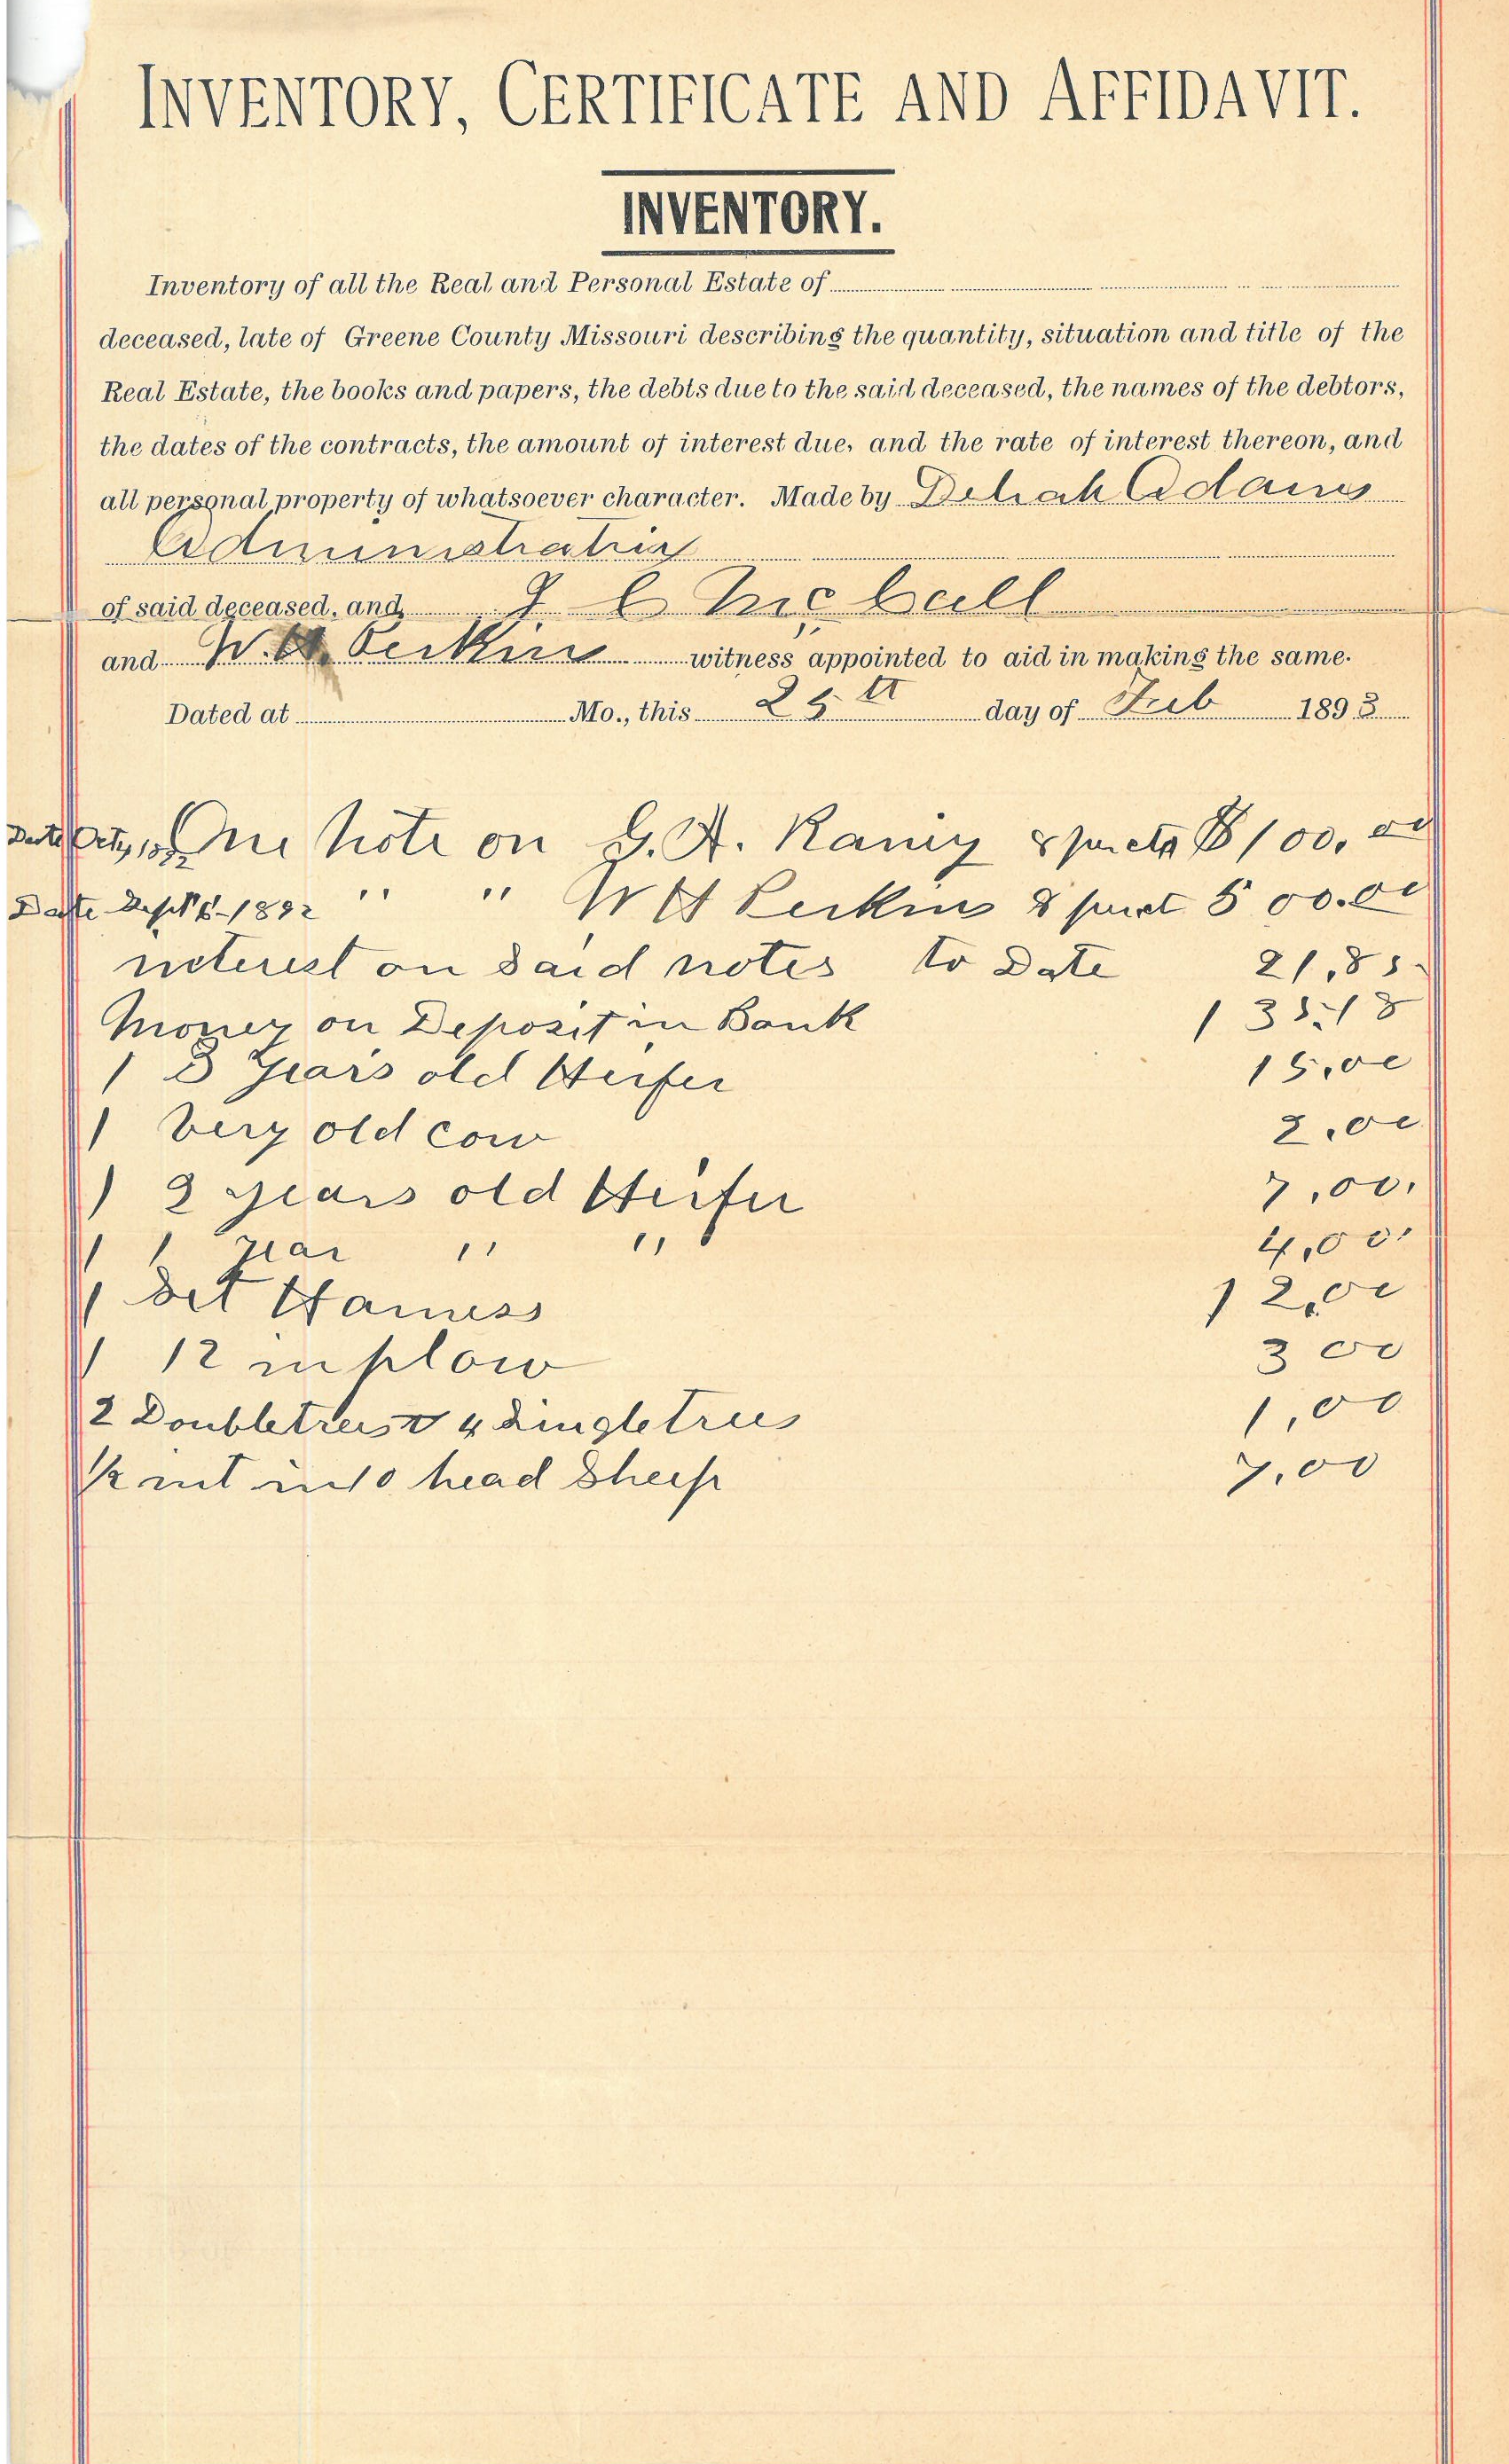 INVENTORY, CERTIFICATE AND AFFIDAVIT.
INVENTORY.
Inventory of all the Real and Personal Estate of
deceased, late of Greene County Missouri describing the quantity, situation and title of the
Real Estate, the books and papers, the debts due to the said deceased, the names of the debtors,
the dates of the contracts, the amount of interest due, and the rate of interest thereon, and
all personal property of whatsoever character. Made by Deliah Adams
Administratrix
of said deceased, and J C McCall
and W. H. Perkins witness appointed to aid in making the same.
Dated at Mo., this 25th day of Feb 1893
Date One Note on G. A. Ramy & $100.00
Date Sept 1892 " " W H Perkins & 500.00
interest on said notes to Date 21.85
Money on Deposit in Bank 135.18
1 3 years old Heifer 15.00
1 very old cow 2.00
1 2 years old Heifer 7.00
1 1 year " " 4.00
1 Set Harness 12.00
1 12 in plow 3 00
2 Doubletrees & 4 Singletrees 1.00
1/2 int in 10 head Sheep 7.00